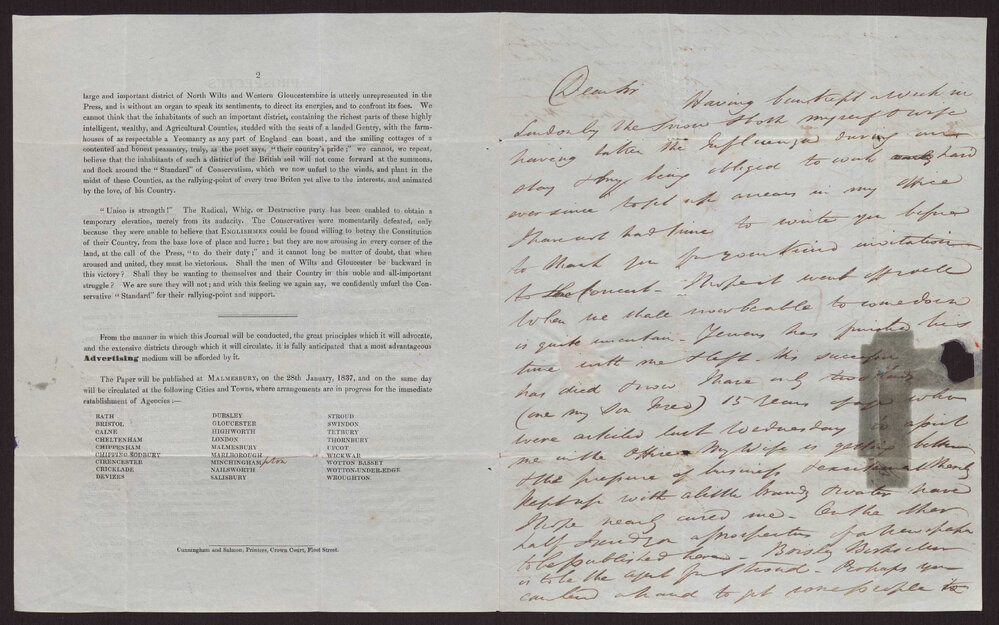 2
large and important district of North Wilts and Western Gloucestershire is utterly unrepresented in the
Press, and is without an organ to speak its sentiments, to direct its energies, and to confront its foes. We
cannot think that the inhabitants of such an important district, containing the richest parts of these highly
intelligent, wealthy, and Agricultural Counties, studded with the seats of a landed Gentry, with the farm-
houses of as respectable a Yeomanry as any part of England can boast, and the smiling cottages of a
contented and honest peasantry, truly, as the poet says, "their country's pride;" we cannot, we repeat,
believe that the inhabitants of such a district of the British soil will not come forward at the summons,
and flock around the "Standard" of Conservatism, which we now unfurl to the winds, and plant in the
midst of these Counties, as the rallying-point of every true Briton yet alive to the interests, and animated
by the love, of his Country.
"Union is strength!" The Radical, Whig, or Destructive party has been enabled to obtain a
temporary elevation, merely from its audacity. The Conservatives were momentarily defeated, only
because they were unable to believe that ENGLISHMEN could be found willing to betray the Constitution
of their Country, from the base love of place and lucre; but they are now arousing in every corner of the
land, at the call of the Press, "to do their duty;" and it cannot long be matter of doubt, that when
aroused and united, they must be victorious. Shall the men of Wilts and Gloucester be backward in
this victory? Shall they be wanting to themselves and their Country in this noble and all-important
struggle? We are sure they will not; and with this feeling we again say, we confidently unfurl the Con-
servative "Standard" for their rallying-point and support.
From the manner in which this Journal will be conducted, the great principles which it will advocate,
and the extensive districts through which it will circulate, it is fully anticipated that a most advantageous
Advertising medium will be afforded by it.
The Paper will be published at MALMESBURY, on the 28th January, 1837, and on the same day
will be circulated at the following Cities and Towns, where arrangements are in progress for the immediate
establishment of Agencies:—
BATH
BRISTOL
CALNE
CHELTENHAM
CHIPPENHAM
CHIPPING SODBURY
CIRENCESTER
CRICKLADE
DEVIZES
DURSLEY
GLOUCESTER
HIGHWORTH
LONDON
MALMESBURY
MARLBOROUGH
MINCHINGHAMpton
NAILSWORTH
SALISBURY
STROUD
SWINDON
TETBURY
THORNBURY
UFCOT
WICKWAR
WOTTON BASSET
WOTTON-UNDER-EDGE
WROUGHTON.
Cunningham and Salmon, Printers, Crown Court, Fleet Street.
Dear Sir Having been kept a week in
London by the Snow & both myself & wife
having taken the Influenza during our
stay & being obliged to work hard
ever since to get up arrears in my office
I have not had time to write you before
to thank you for your kind invitation
to
When we shall now be able to come down
is quite uncertain - has his
time with me & left - his successor
has died & now I have only two
(one my Son Fred) 15 years of age who
were articled last Wednesday to
me in the Office My Wife is getting better
& the pressure of business
kept up with a little brandy & water have
I hope nearly cured me - On the other
half I send you a prospectus of a Newspaper
to be published here -
is to be the agent for Stroud - Perhaps you
can lend a hand to get some people to